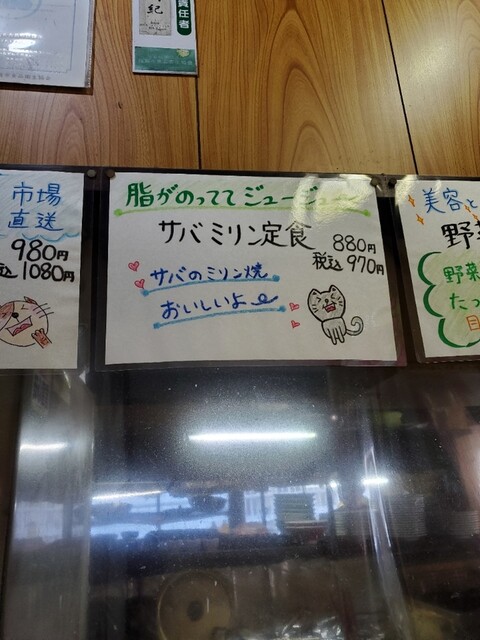 責任者
紀
市場
直送
980円
込1080円
脂がのっててジュージュー
サバミリン定食
880円
税込970円
サバのミリン焼
おいしいよ
美容と
野
野菜
たっ